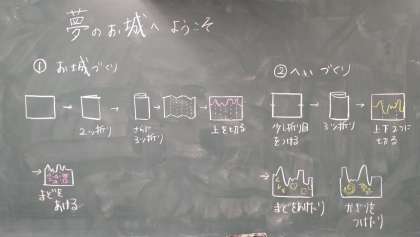 夢のお城へ ようこそ
① お城づくり
2つ折り
さらに
3ツ折り
上を切る
まどを
あける
② へいづくり
少し折り目
をつける
3ツ折り
上下2つに
切る
まどをあけたり
かざりを
つけたり